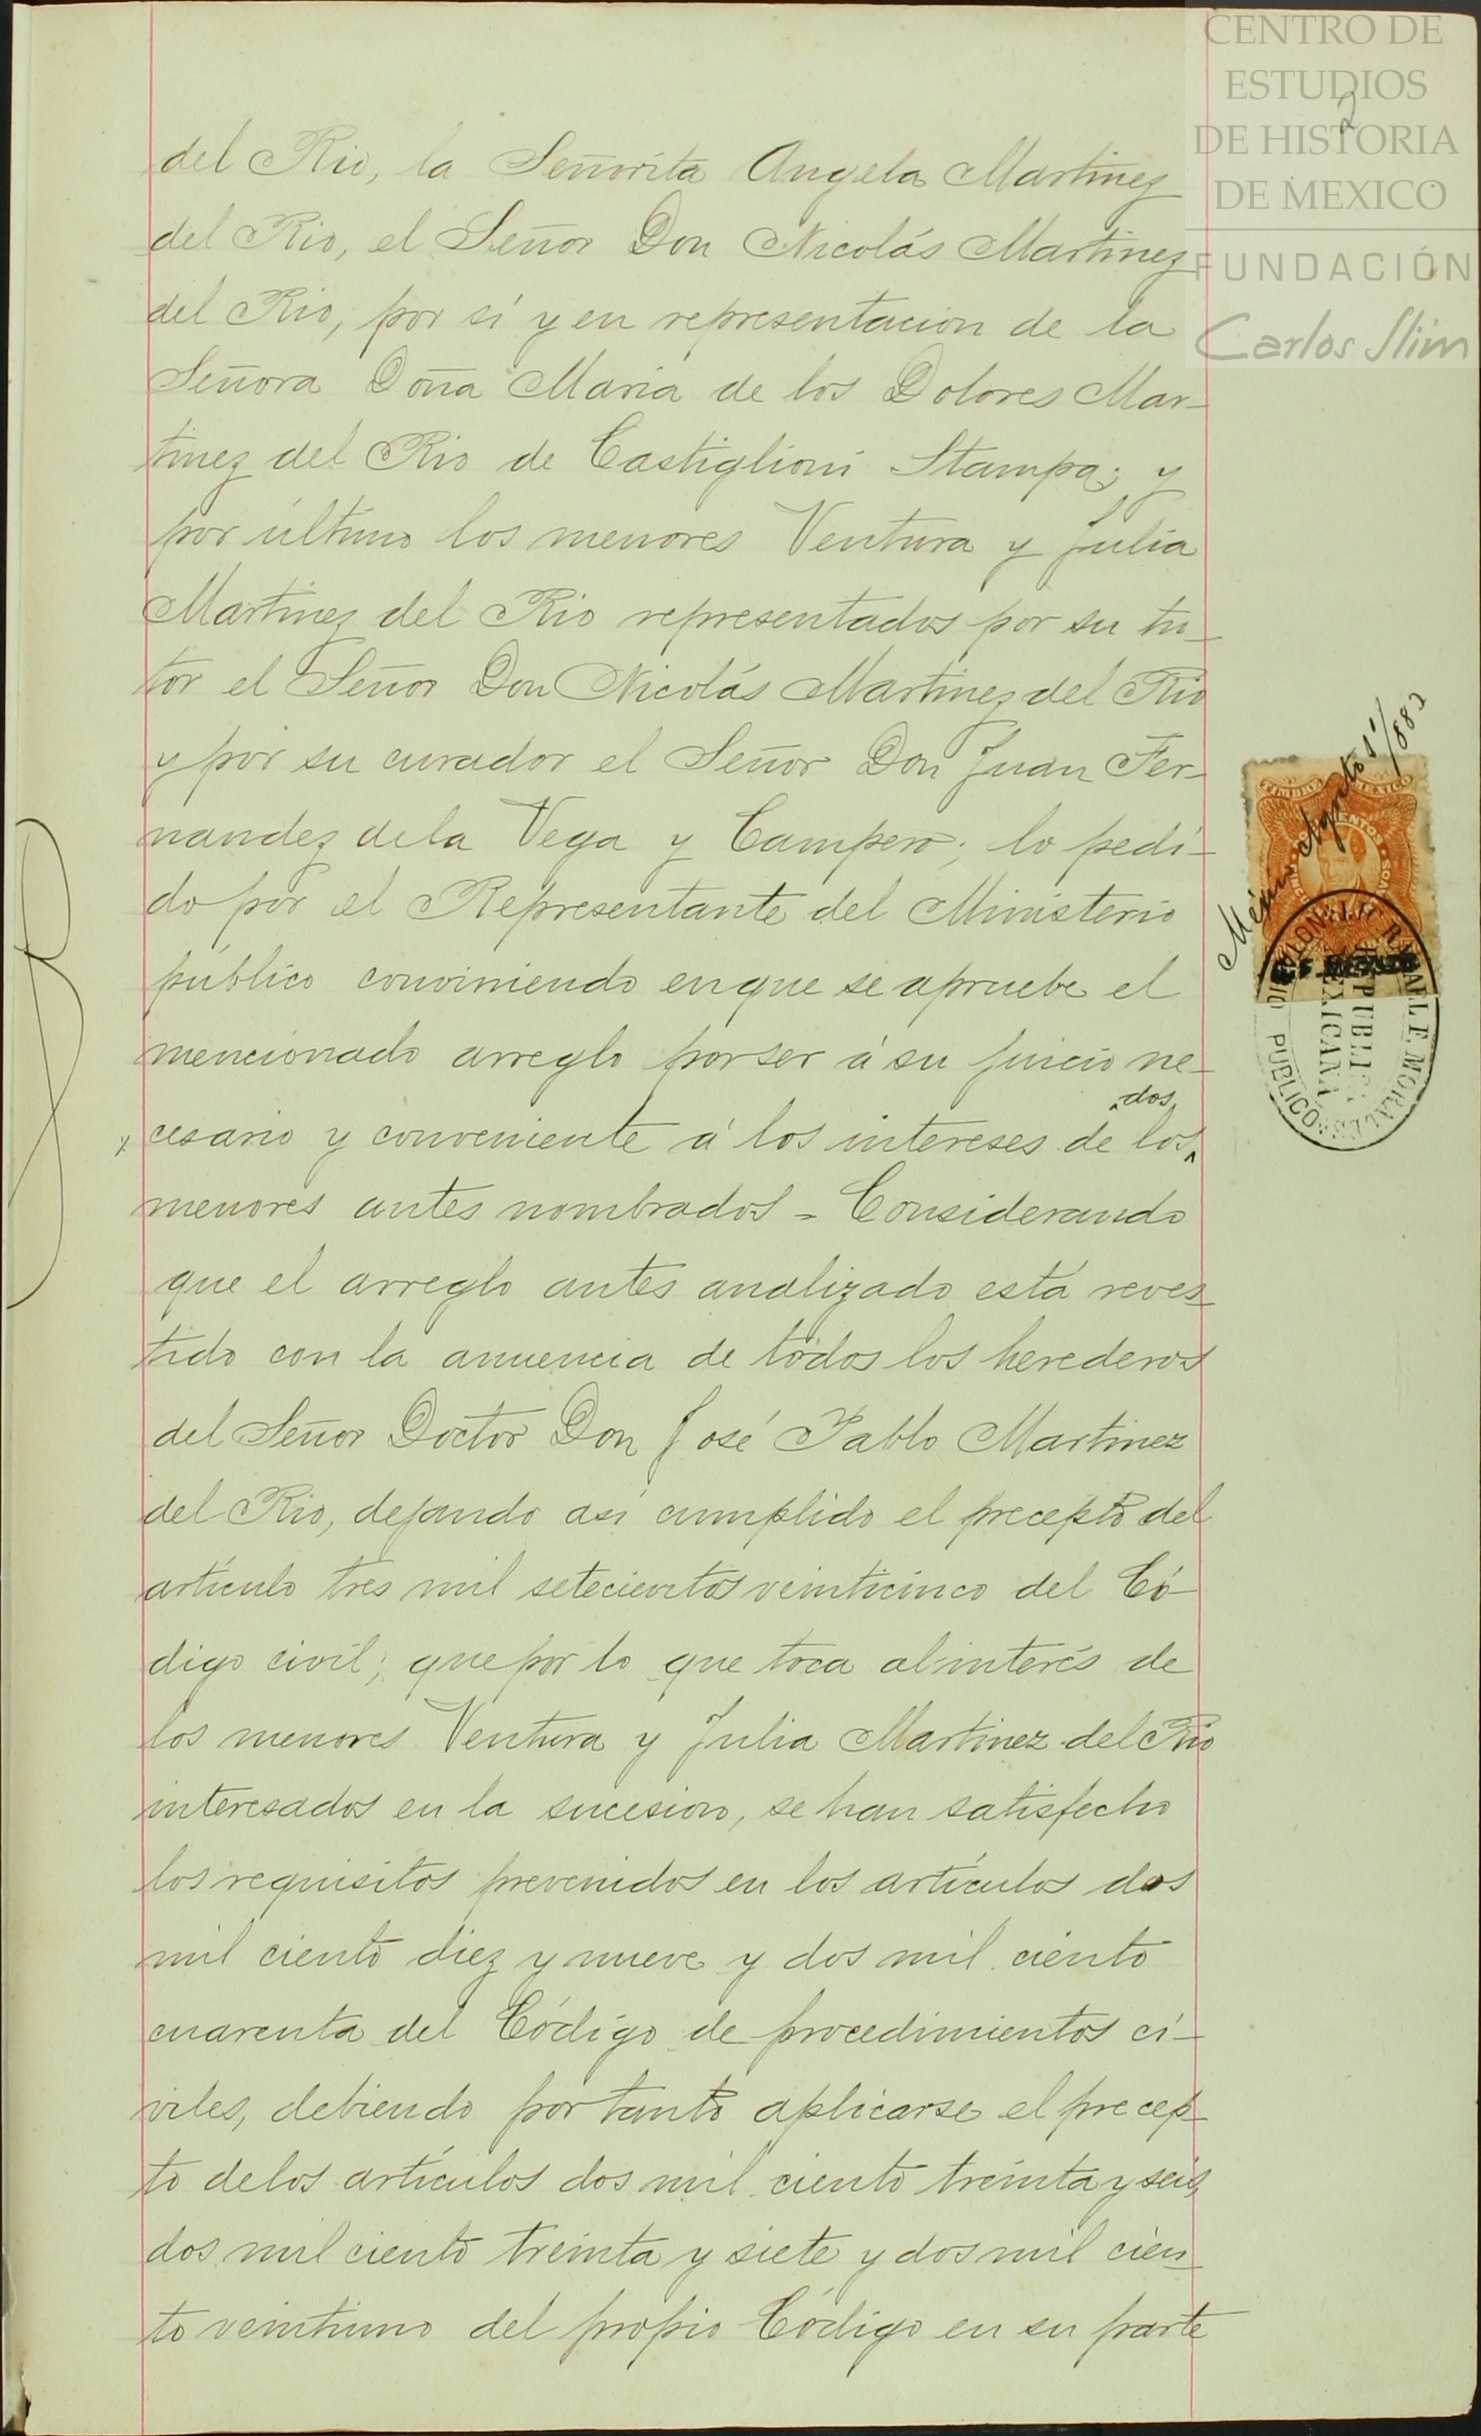 CENTRO DE
ESTUDIOS
DE HISTORIA
DE MEXICO
FUNDACIÓN
Carlos Slim
2
del Rio, la Señorita Angela Martinez
del Rio, el Señor Don Nicolás Martinez
del Rio, por sí y en representacion de la
Señora Doña Maria de los Dolores Mar-
tinez del Rio de Castiglioni Stampa; y
por último los menores Ventura y Julia
Martinez del Rio representados por su tu-
tor el Señor Don Nicolás Martinez del Rio
y por su curador el Señor Don Juan Fer-
nandez de la Vega y Campero; lo pedi-
do por el Representante del Ministerio
público conviniendo en que se apruebe el
mencionado arreglo por ser á su juicio ne-
dos
cesario y conveniente á los intereses de los
menores antes nombrados - Considerando
que el arreglo antes analizado está reves-
tido con la anuencia de todos los herederos
del Señor Doctor Don José Pablo Martinez
del Rio, dejando asi cumplido el precepto del
artículo tres mil setecientos veinticinco del Có-
digo civil; que por lo que toca al interés de
los menores Ventura y Julia Martinez del Rio
interesados en la sucesion, se han satisfecho
los requisitos prevenidos en los artículos dos
mil ciento diez y nueve y dos mil ciento
cuarenta del Código de procedimientos ci-
viles, debiendo por tanto aplicarse el precep-
to de los artículos dos mil ciento treinta y seis,
dos mil ciento treinta y siete y dos mil cien-
to veintiuno del propio Código en su parte
México Agosto 1º/882
MEXICO
RAFAEL F. MORALES
PUBLICO
REPUBLICA
MEXICANA